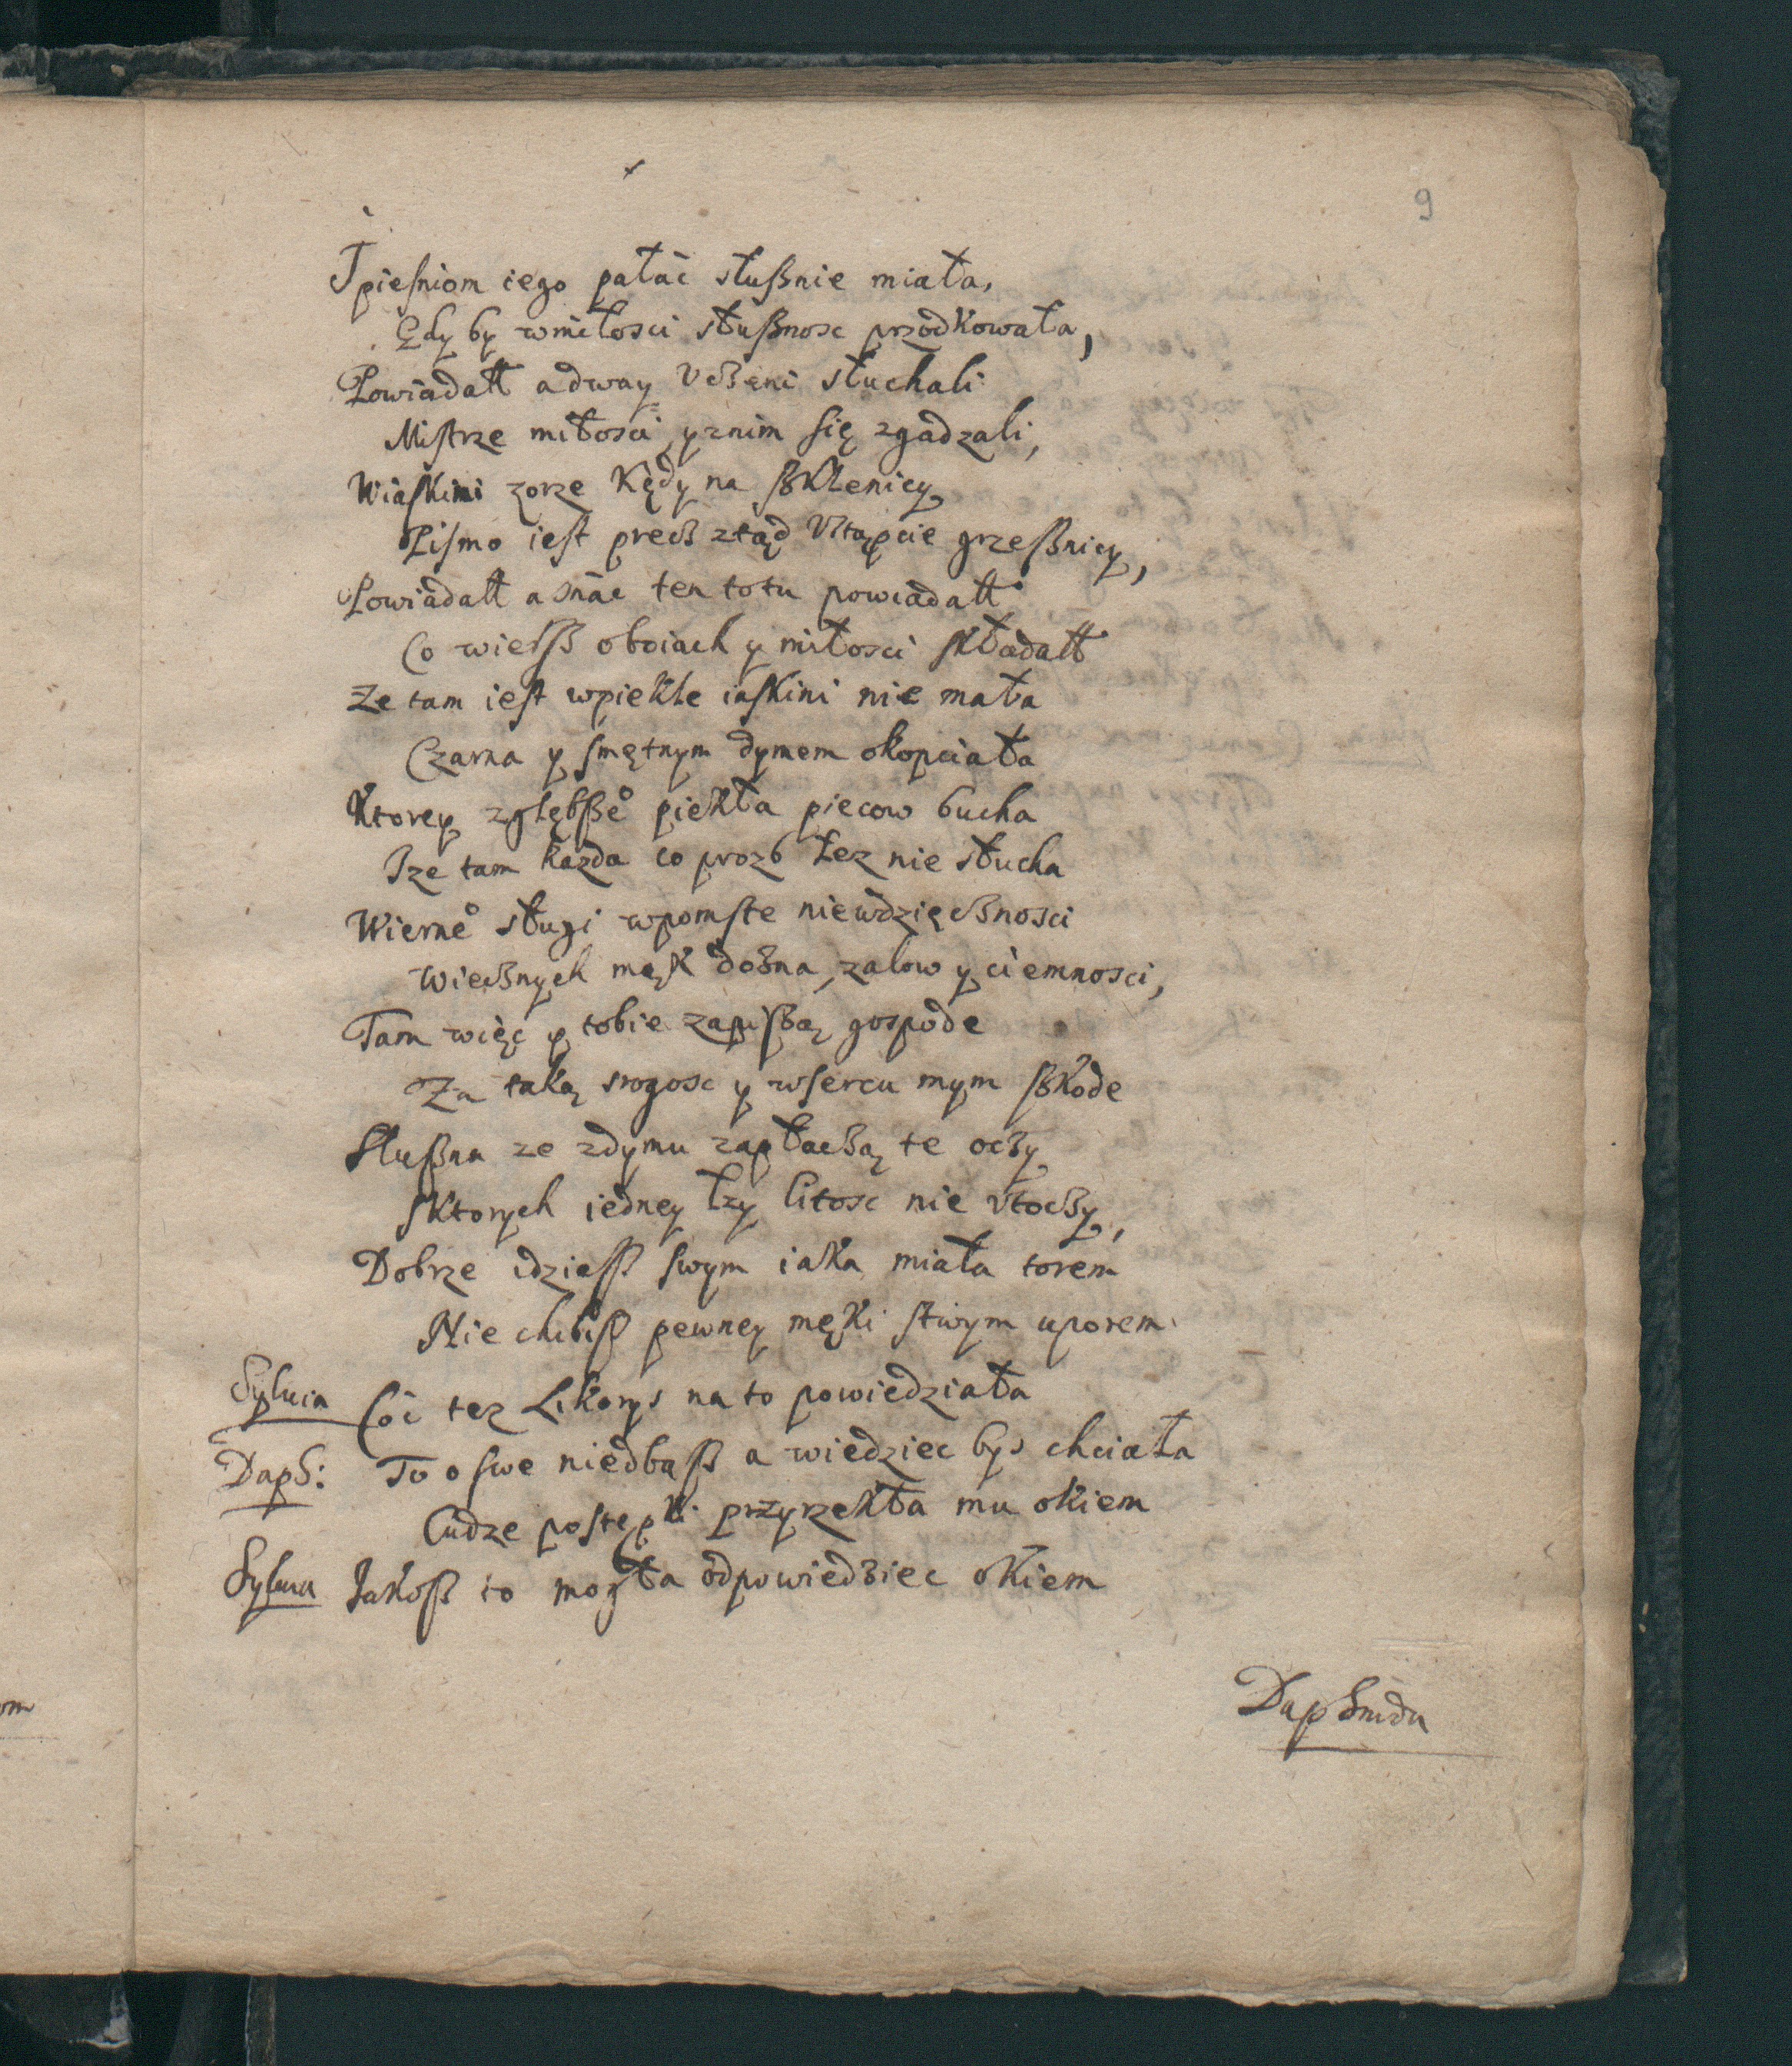 9
I pieſniom iego pałac słuſznie miała,
Gdy by wmiłosci słuſznosc przodkowała,
Powiadałł adway Vczeni słuchali
Miſtrze miłosci yznim ſię zgadzali,
Wiaſkini zorze Kędy na ſzklenicy
Piſmo ieſt precz ztąd Vſtąpcie grzeſznicy,
Powiadałł asnac ten totu powiadałł
Co wierſz oboiach y miłosci ſkładałł
Ze tam ieſt wpiekle iaſkini nie mała
Czarna y ſmętnym dymem okopciała
Ktorey zglębſze° piekła piecow bucha
Ize tam kazda co prozb łez nie słucha
Wierne° sługi wpomſte niewdzięcznosci
Wiecznych męk dozna, zalow y ciemnosci,
Tam więc y tobie zapiſzą gospode
Za taką srogosc y wſercu mym ſzkode
Sluſzna ze zdymu zapłaczą te oczy
ſktorych iedney łzy litosc nie vtoczy,
Dobrze idzieſz ſwym iaka miała torem
Nie chibiſz pewney męki ſtwym uporem.
Sylvia Coc tez Likorys na to powiedziała
Daph: To o ſwe niedbaſz a wiedziec bys chciała
Cudze postępki przyrzekła mu okiem
Sylvia Jakoſz to mogła odpowiedziec okiem
Daphnida
om